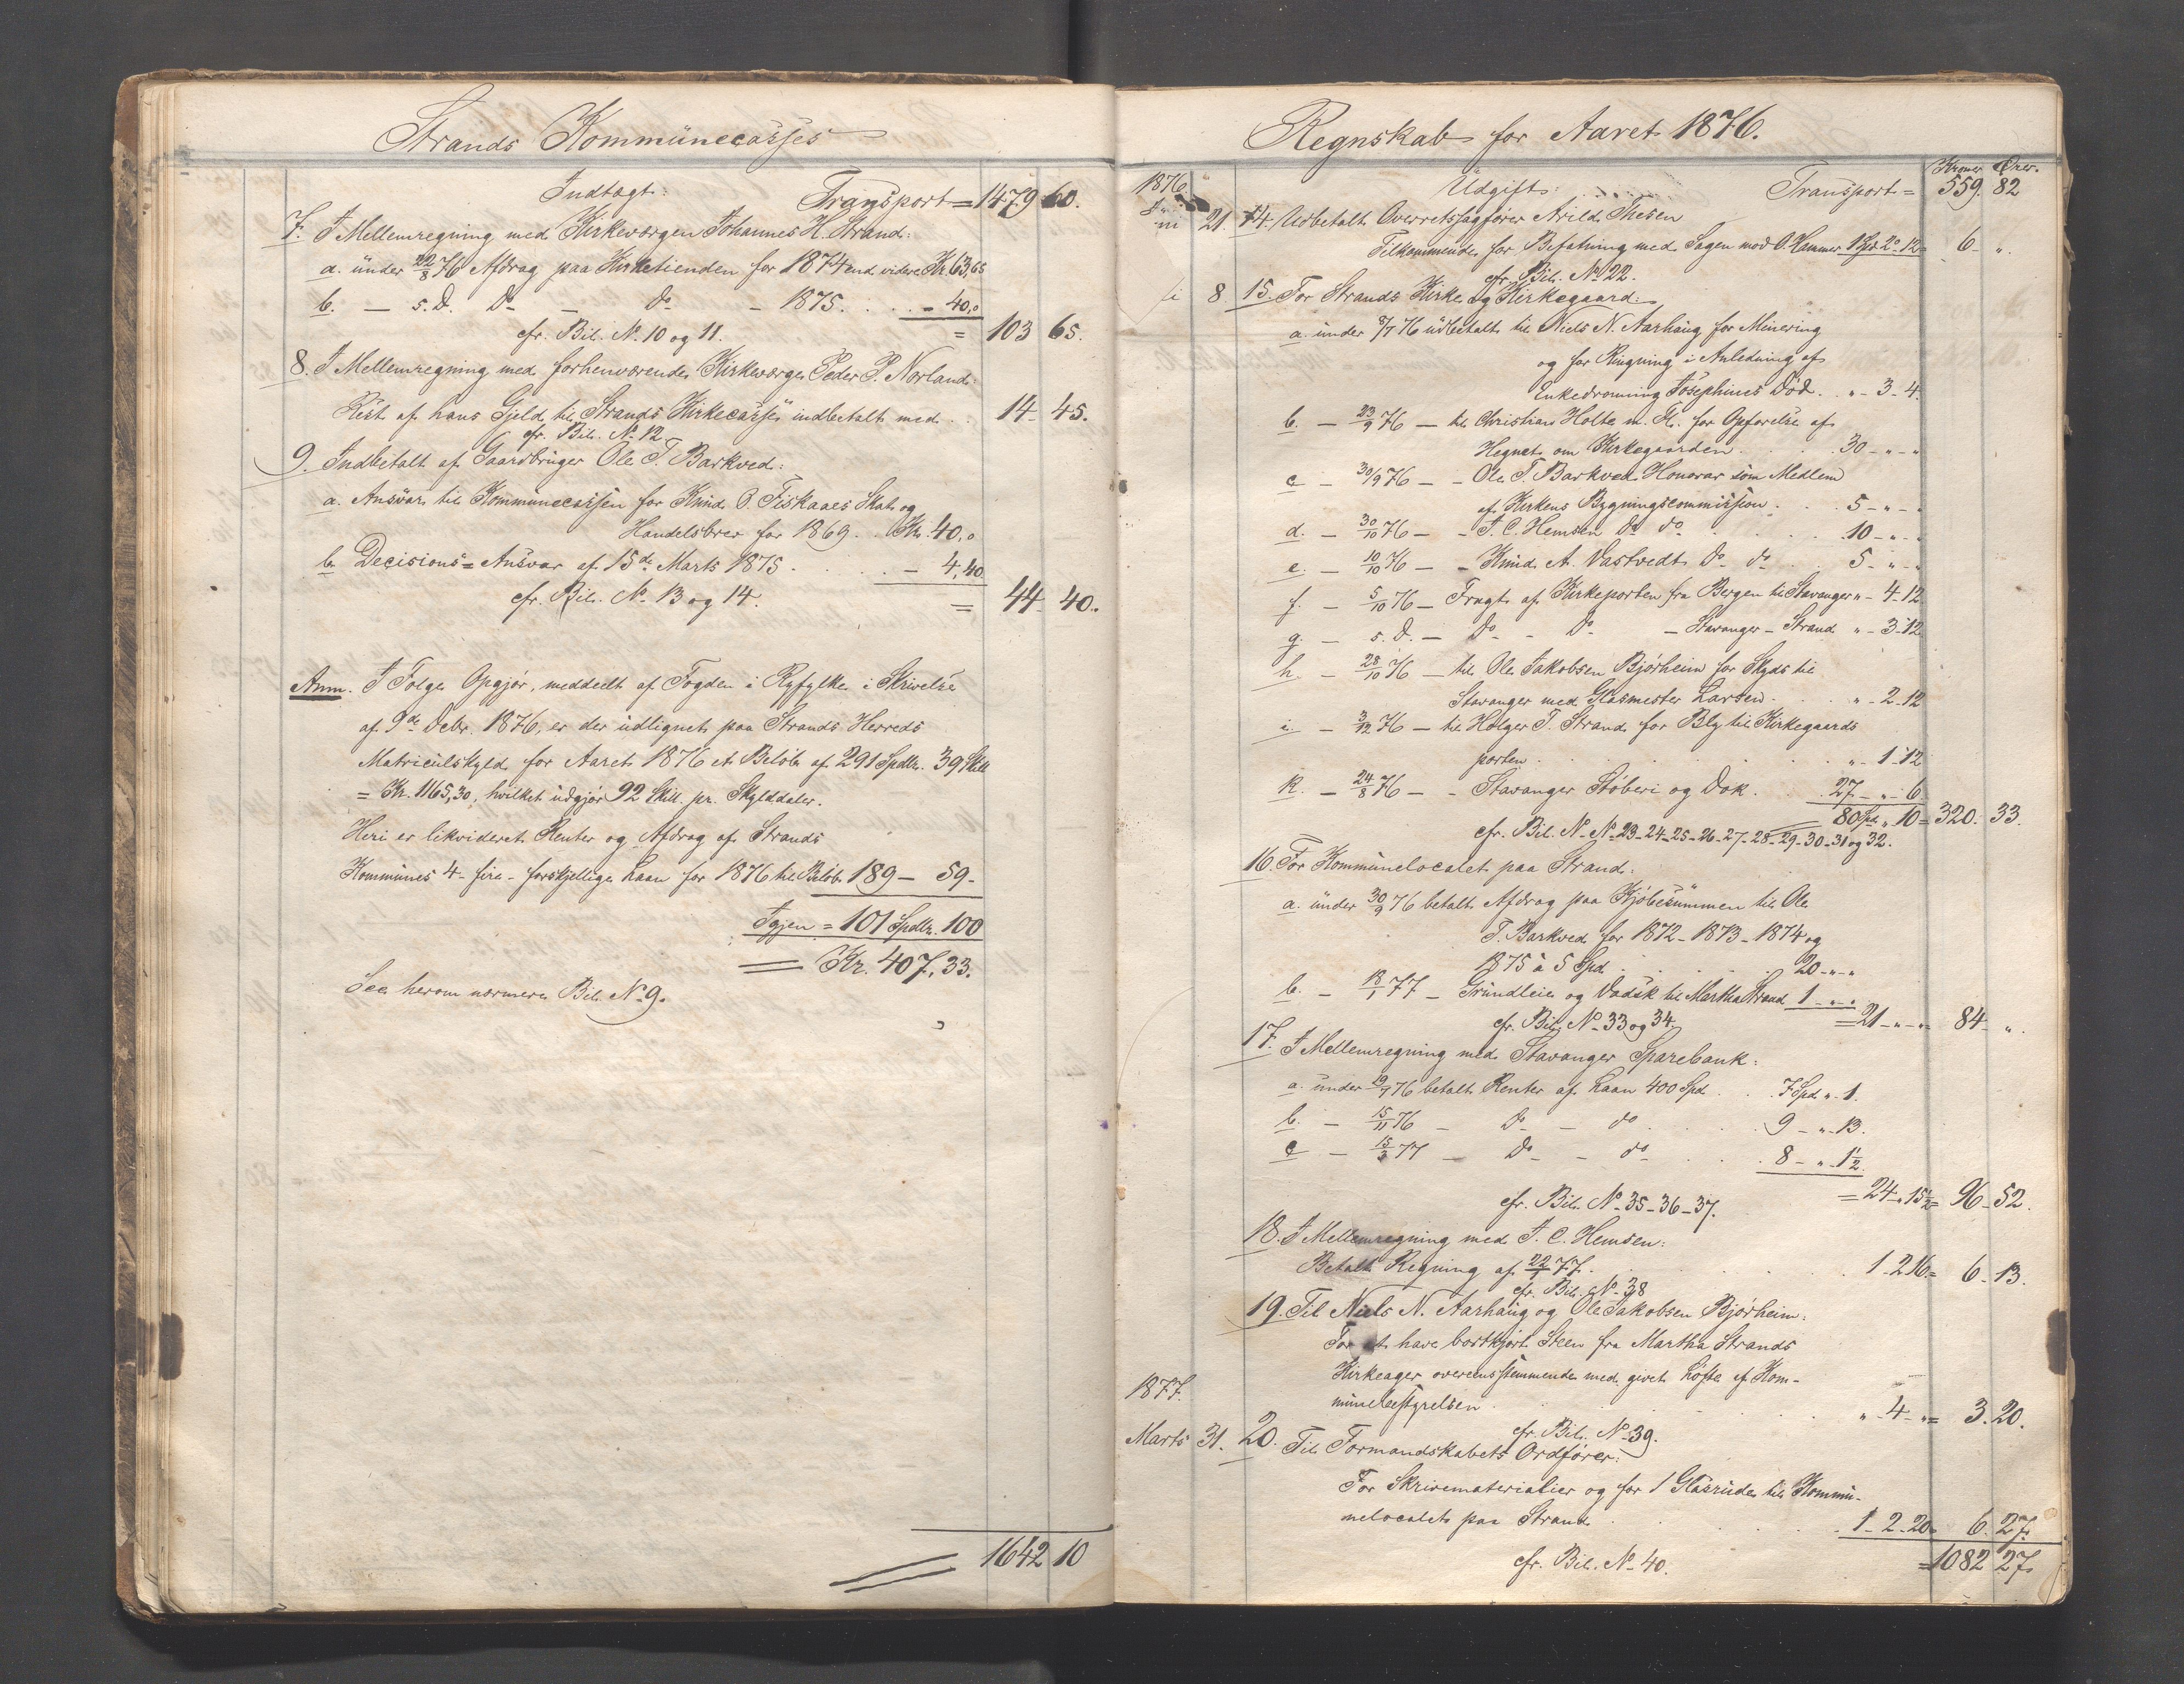 Strands Kommünecasses
Indtægt: Transport = 1479 60.
7. I Mellemregning med Kirkeværgen Johannes H. Strand:
a. ünder 22/8 76 Afdrag paa Kirketienden for 1874 end videre Kr. 63,65
b. — s. D. Do — do — 1875 . . . — 40,0
cfr. Bil. No. 10 og 11. = 103 65.
8. I Mellemregning med forhenværende Kirkeværge Peder P. Norland:
Rest af hans Gjeld til Strands Kirkecasse indbetalt med . . 14 - 45.
cfr. Bil. No. 12
9. Indbetalt af Gaardbrüger Ole T. Barkved:
a. Ansvar til Kommünecassen for Knüd O. Fiskaaes Skat og
Handelsbrev for 1869 . . Kr. 40,0
b. Decisions = Ansvar af 15de Marts 1875 . . . — 4,40
cfr. Bil. No. 13 og 14. = 44 - 40.
Anm. I Følge Opgjør, meddeelt af Fogden i Ryfylke i Skrivelse
af 9de Decbr. 1876, er der üdlignet paa Strands Herreds
Matricülskyld for Aaret 1876 et Beløb af 291 Spdlr. 39 Skill
= Kr. 1165,30, hvilket üdgjør 92 Skill. pr. Skylddaler.
Heri er likvideret Renter og Afdrag af Strands
Kommünes 4 - fire - forskjellige Laan for 1876 til Beløb 189 — 59 -
Igjen = 101 Spdlr. 100
= Kr. 407,33.
See herom nærmere Bil. No. 9.
1642 10
Regnskab for Aaret 1876.
Kroner Ører.
1876. Üdgift: Transport = 559. 82
Jüni 21. 14. Udbetalt Overretssagfører Arild Thesen
Tilkommende for Befatning med Sagen mod O. Hammer 1 Spd. 2 - 12 = 6 - "
cfr. Bil. No. 22.
8 15. For Strands Kirke og Kirkegaard:
a. ünder 8/7 76 üdbetalt til Niels N. Aarhaüg for Minering
og for Ringning i Anledning af
Enkedronning Josephines Død . . " - 3 - 4.
b. — 23/9 76 — til Christian Holte m. Fl. for Opførelse af
Hegnet om Kirkegaarden . . . 30 - " - "
c — 30/9 76 — - Ole T. Barkved Honorar som Medlem
af Kirkens Bygningscommission . . 5 - " - "
d. — 30/10 76 — - I. C. Hemsen Do do . . . 10 - " - "
e. — 10/10 76 — - Knüd A. Vastvedt Do do . . 5 - " - "
f. — 5/10 76 — Fragt af Kirkeporten fra Bergen til Stavanger " - 4 - 12
g. — s. D. — Do - Do — Stavanger - Strand " - 3 - 12
h. — 28/10 76 — til Ole Jakobsen Bjørheim for Skyds til
Stavanger med Glasmester Larsen . . " - 2 - 12
i. — 3/12 76 — til Holger T. Strand for Bly til Kirkegaards
porten . . . " - 1 - 12
k. — 24/8 76 — - Stavanger Støberi og Dok . . 27 - " - 6
80 Spd " 10 = 320. 33.
cfr. Bil. No. No. 23 - 24 - 25 - 26 - 27 - 28 - 29 - 30 - 31 og 32.
16. For Kommünelocalet paa Strand:
a. ünder 30/9 76 betalt Afdrag paa Kjøbesümmen til Ole
T. Barkved for 1872 - 1873 - 1874 og
1875 à 5 Spd. . . . 20 - " - "
b. — 18/1 77 — Gründleie og Vadsk til Martha Strand 1 - " - "
cfr. Bil. No. 33 og 34. = 21 - " - " = 84 - "
17. I Mellemregning med Stavanger Sparebank:
a. ünder 19/7 76 betalt Renter af Laan 400 Spd. . . 7 Spd. " - 1.
b. — 15/11 76 — Do — do . . . 9 - " - 13.
c — 15/3 77 — Do — do . . . 8 - " - 1 1/2
cfr. Bil. No. 35 - 36 - 37. = 24 - " 15 1/2 = 96 - 52.
18. I Mellemregning med I. C. Hemsen:
Betalt Regning af 22/1 77. . . . 1 - 2 16 = 6 - 13.
cfr. Bil. No. 38
19. Til Niels N. Aarhaüg og Ole Jakobsen Bjørheim:
For at have bortkjørt Steen fra Martha Strands
Kirkeager overeensstemmende med givet Løfte af Kom-
münebestyrelsen . . . " - 4 - " = 3. 20.
cfr. Bil. No. 39.
1877.
Marts 31. 20. Til Formandskabets Ordfører:
For Skrivematerialier og for 1 Glasrüde til Kommü-
nelocalet paa Strand . . . 1 - 2 - 20 = 6. 27.
cfr. Bil. No. 40. = 1082 27